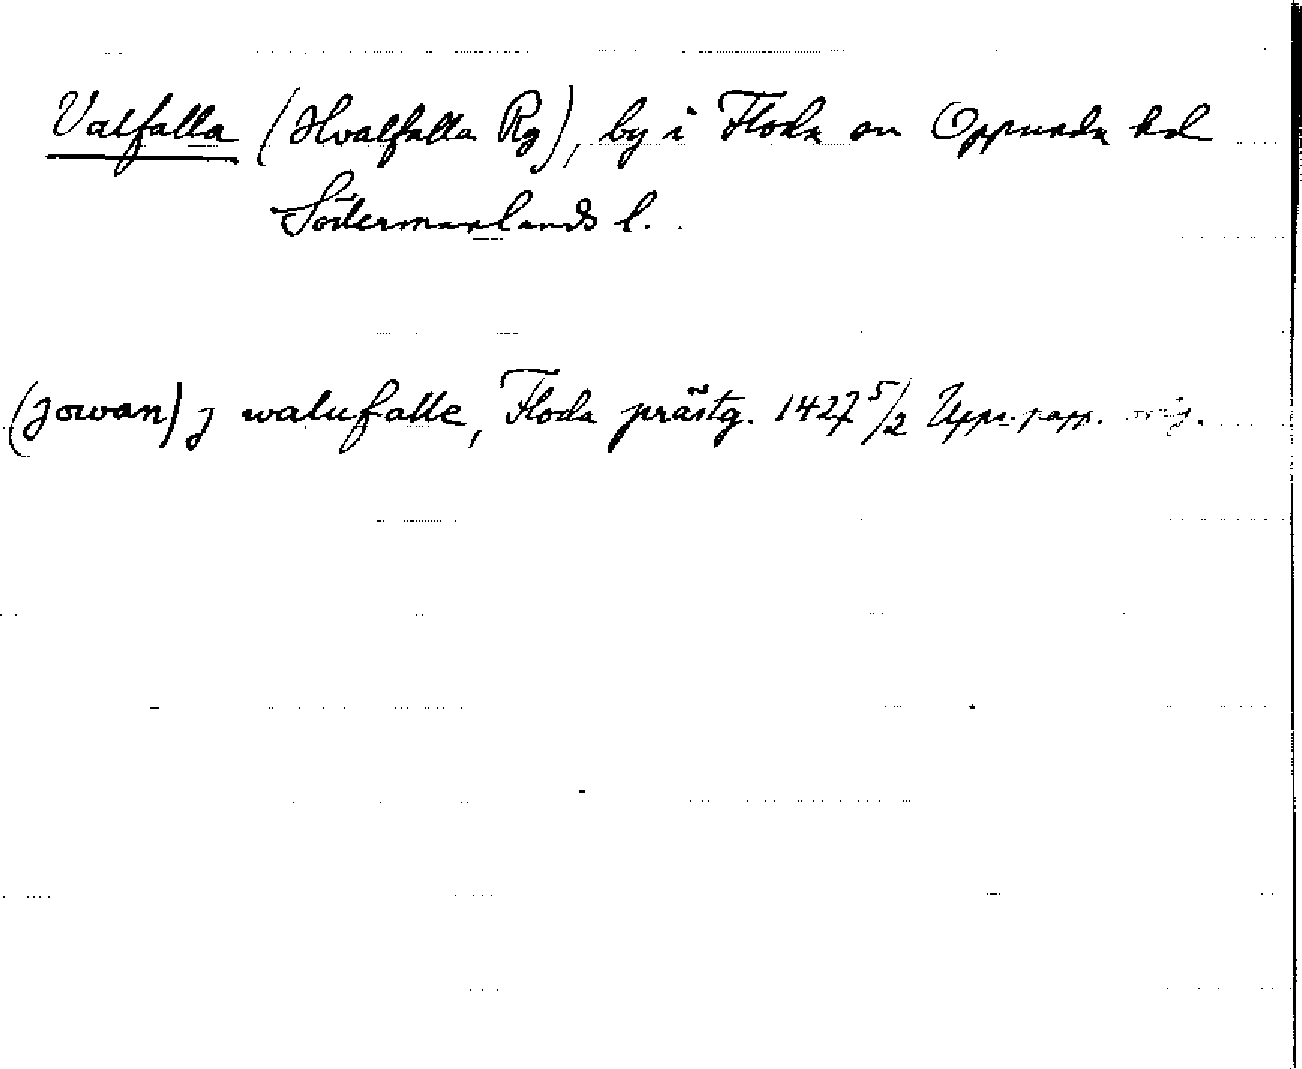 Valfalla (Hvalfalla Rg), by i Floda sn Oppunda hd
Södermanlands l.
(jowan) j walufalle, Floda prästg. 1427 5/2 Upps. papp. orig.